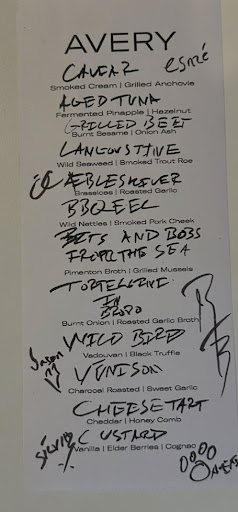 AVERY
CAVIAR
Smoked Cream | Grilled Anchovie
AGED TUNA
Fermented Pineapple | Hazelnut
GRILLED BEET
Burnt Sesame | Onion Ash
LANGOUSTINE
Wild Seaweed | Smoked Trout Roe
ÆBLESKIEVER
Brassicas | Roasted Garlic
BBQ EEL
Wild Nettles | Smoked Pork Cheek
BITS AND BOBS
FROM THE SEA
Pimenton Broth | Grilled Mussels
TORTELLINI
IN
BRODO
Burnt Onion | Roasted Garlic Broth
WILD BIRD
Vadouvan | Black Truffle
Jason
VENISON
Charcoal Roasted | Sweet Garlic
CHEESE TART
Cheddar | Honey Comb
CUSTARD
Vanilla | Elder Berries | Cognac